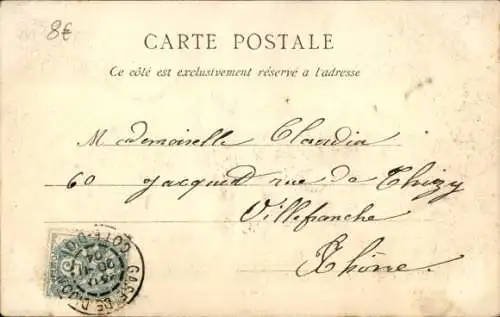 8€
CARTE POSTALE
Ce côté est exclusivement réservé a l'adresse
Mademoiselle Claudia
60 Jacquet rue de Thizy
Villefranche
Rhône
GARE DE DIJON
COTE-D'OR
04